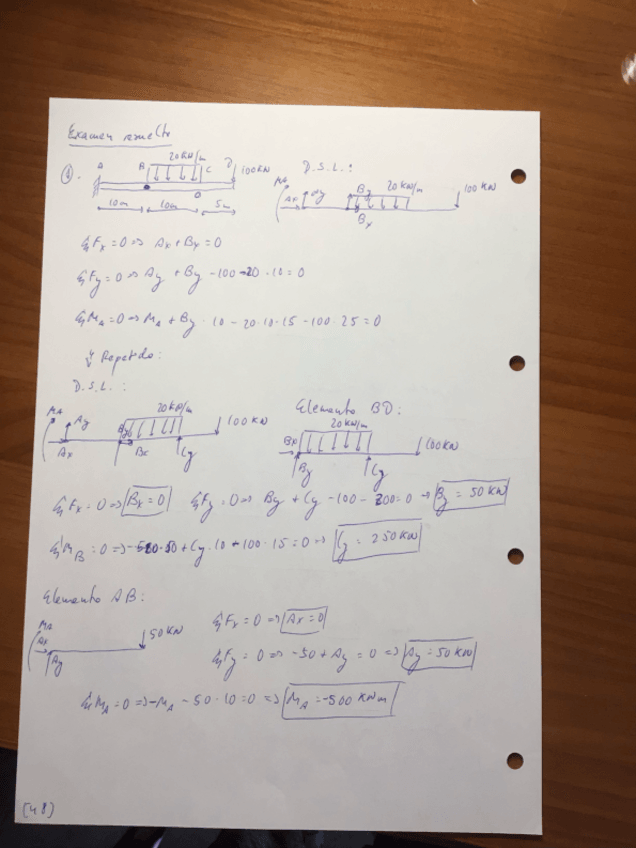 Examen resuelto
①.
A B 20 KN/m C D 100 KN
10m 10m 5m
D.S.L.:
MA Ax Ay By Bx 20 KN/m 100 KN
ΣFx = 0 => Ax + Bx = 0
ΣFy = 0 => Ay + By - 100 - 20 · 10 = 0
ΣMA = 0 => MA + By · 10 - 20·10·15 - 100·25 = 0
↳ Repetido:
D.S.L.:
MA Ay Ax By Bx 20 KN/m Cy 100 KN
Elemento BD:
Bx By 20 KN/m Cy 100 KN
ΣFx = 0 => Bx = 0 ΣFy = 0 => By + Cy - 100 - 200 = 0 -> By = 50 KN
ΣMB = 0 => + Cy · 10 + 100 · 15 = 0 -> Cy = 250 KN
Elemento AB:
MA Ax Ay 50 KN
ΣFx = 0 => Ax = 0
ΣFy = 0 => -50 + Ay = 0 => Ay = 50 KN
ΣMA = 0 => -MA - 50 · 10 = 0 => MA = -500 KNm
[48]